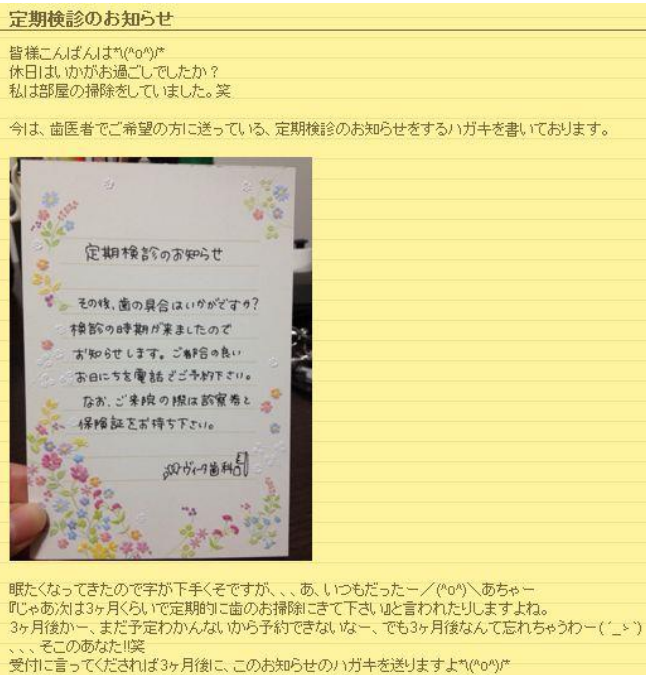 定期検診のお知らせ
皆様こんばんは*\(^o^)/*
休日はいかがお過ごしでしたか？
私は部屋の掃除をしていました。笑
今は、歯医者でご希望の方に送っている、定期検診のお知らせをするハガキを書いております。
定期検診のお知らせ
その後、歯の具合はいかがですか?
検診の時期が来ましたので
お知らせします。ご都合の良い
お日にちを電話でご予約下さい。
なお、ご来院の際は診察券と
保険証をお持ち下さい。
ヴィータ歯科
眠たくなってきたので字が下手くそですが、、、あ、いつもだったー／(^o^)＼あちゃー
『じゃあ次は3ヶ月くらいで定期的に歯のお掃除にきて下さい』と言われたりしますよね。
3ヶ月後かー、まだ予定わかんないから予約できないなー、でも3ヶ月後なんて忘れちゃうわー( ´_ゝ`)
、、、そこのあなた!!笑
受付に言ってくだされば3ヶ月後に、このお知らせのハガキを送りますよ*\(^o^)/*